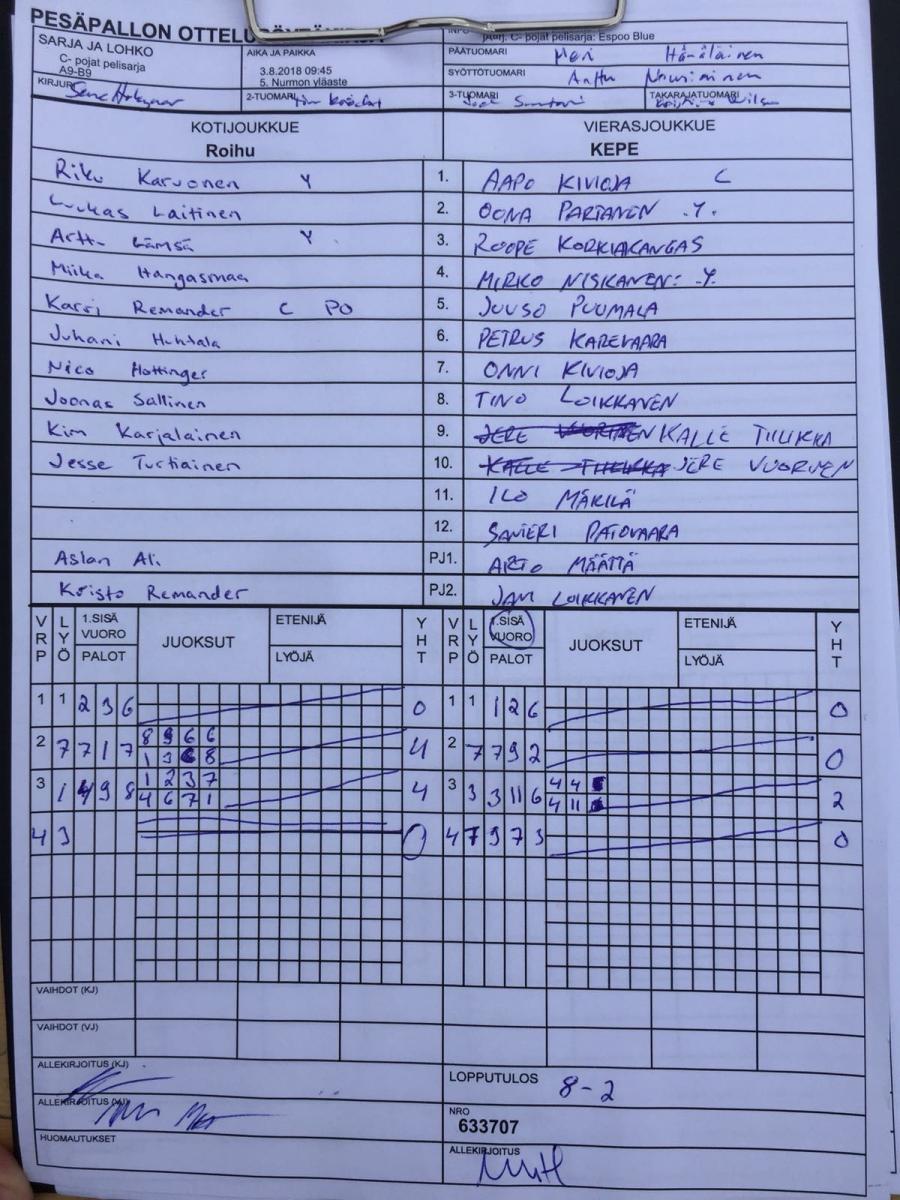 PESÄPALLON
SARJA JA LOHKO
C- pojat pelisarja
A9-B9
AIKA JA PAIKKA
3.8.2018 09:45
5. Nurmon yläaste
C- pojat pelisarja: Espoo Blue
PÄÄTUOMARI Meri Hämäläinen
SYÖTTÖTUOMARI Anttu Nousiainen
KIRJURI
2-TUOMARI
3-TUOMARI
TAKARAJATUOMARI
KOTIJOUKKUE VIERASJOUKKUE
Roihu KEPE
Riku Karvonen Y 1. AAPO KIVIOJA C
Luukas Laitinen 2. OONA PARTANEN .Y.
Arttu Lämsä Y 3. ROOPE KORKIAKANGAS
Miika Hangasmaa 4. MIRKO NISKANEN: .Y.
Karri Remander C PO 5. JUUSO PUUMALA
Juhani Huhtala 6. PETRUS KAREVAARA
Nico Hottinger 7. ONNI KIVIOJA
Joonas Sallinen 8. TINO LOIKKANEN
Kim Karjalainen 9. KALLE TIILIKKA
Jesse Turtiainen 10. JERE VUORINEN
11. ILO MÄKILÄ
12. SANTERI PATOVAARA
Aslan Ali. PJ1. ARTO MÄÄTTÄ
Kristo Remander PJ2. JANI LOIKKANEN
VRP LYÖ 1.SISÄ VUORO PALOT JUOKSUT ETENIJÄ LYÖJÄ YHT VRP LYÖ 1.SISÄ VUORO PALOT JUOKSUT ETENIJÄ LYÖJÄ YHT
1 1 2 3 6 0 1 1 1 2 6 0
2 7 7 1 7 8 9 6 6 4 2 7 7 9 2 0
1 3 6 8
3 1 4 9 8 1 2 3 7 4 3 3 3 11 6 4 4 2
4 6 7 1 4 11
4 3 0 4 7 9 7 3 0
VAIHDOT (KJ)
VAIHDOT (VJ)
ALLEKIRJOITUS (KJ)
LOPPUTULOS 8-2
ALLEKIRJOITUS (VJ)
NRO
633707
HUOMAUTUKSET
ALLEKIRJOITUS